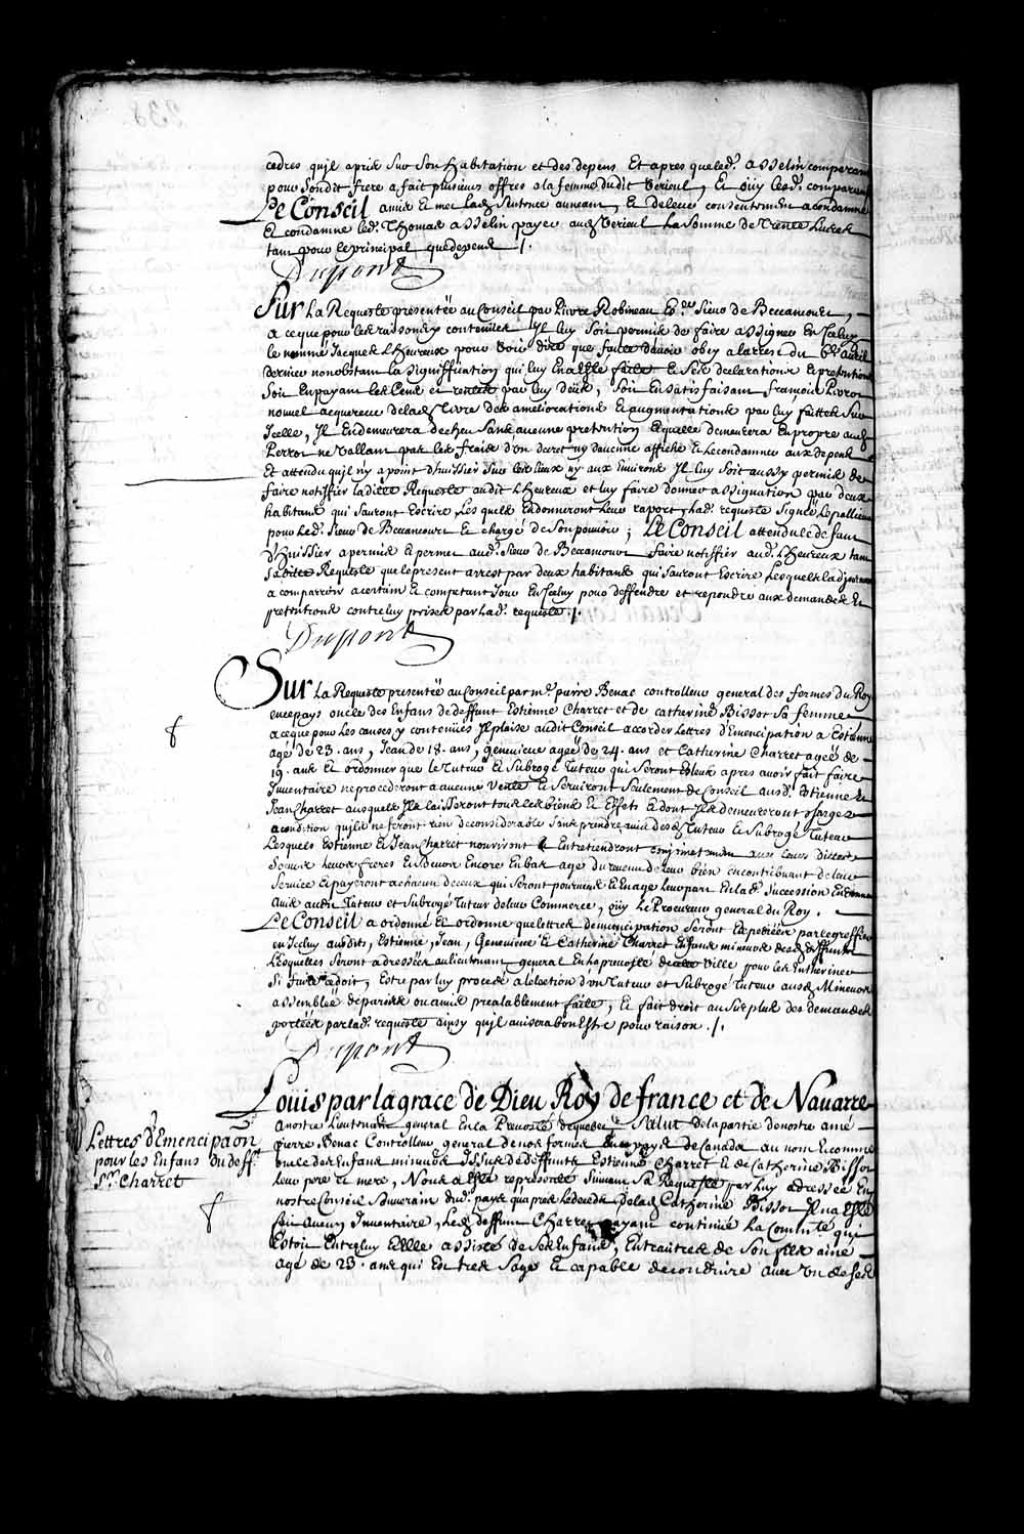 cedres qu'il a pris sur son habitation et des depens Et apres que led. asselin comparant
pour sondit frere a fait plusieurs offres a la femme dudit Verieul, Et oüy lesd. comparans
Le Conseil a mis Et met lad. sentence au neant, Et de leur consentement a condamné
Et condamne led. Thomas asselin payer aud. Verieul la somme de Trente livres
tant pour le principal que depens /.
Dupont
Sur La Requeste presentéë au Conseil par Pierre Robineau Es.er Sieur de Beccancour,
a ce que pour les raisons y contenües Il luy soit permis de faire assigner En Iceluy
le nommé Jacques L'heureux pour Voir dire que faute d'avoir obey a l'arrest du avril
dernier nonobstant la signiffication qui luy En a esté faite Et ses declarations Et pretentions
soit En payant les Cens et rentes par luy deüs, soit En satisfaisant françois Perrot
nouvel acquereur de lad. Terre des ameliorations Et augmentations par luy faittes sur
Icelle, Il En demeurera descheu sans aucune pretention Et quelle demeurera En propre aud.
Perrot ne Vallant pas les frais d'un decret ny d'aucune affiche Et le condamner aux depens
Et attendu qu'il n'y a point d'huissier sur les lieux ny aux Environs Il luy soit aussy permis de
faire notiffier ladite Requeste audit L'heureux et luy faire donner assignation par deux
habitans qui sauront Escrire, Lesquels En donneront leur raport, Lad. requeste signéë Lepallieur
pour led. Sieur de Beccancour Et chargé de son pouvoir; Le Conseil attendu le defaut
d'huissier a permis Et permet aud. Sieur de Beccancour faire notiffier aud. L'heureux tant
sadite Requeste que le present arrest par deux habitans qui sauront Escrire Lesquels l'adjourneront
a comparroir a certain Et competant Jour En Iceluy pour deffendre et repondre aux demandes Et
pretentions contre luy prises par lad. requeste ./.
Dupont
Sur La Requeste presentéë au Conseil par m.e pierre Benac controlleur general des fermes du Roy
en ce pays oncle des Enfans de deffunt Estienne Charret et de catherine Bissot sa femme
a ce que pour les causes y contenües Il plaise audit Conseil accorder lettres d'Emencipation a Estienne
agé de 23. ans, Jean de 18. ans, genevieve agéë de 24. ans et Catherine Charret agéë de
19. ans Et ordonner que le Tuteur Et Subrogé Tuteur qui seront Esleus apres avoir fait faire
Inventaire ne procederont a aucune Vente Et serviront seulement de Conseil ausd. Estienne Et
Jean Charret ausquels Ils laisseront tous les biens Et Effets Et dont Ils demeureront chargez
a condition qu'ils ne feront rien de considerable sans prendre avis desd. Tuteur Et Subrogé Tuteur
Lesquels Estienne Et Jean Charret nouriront Et Entretiendront conjointement avec leurs dittes
soeurs leurs freres Et soeurs Encore En bas age du revenu de leur bien en contribuant de leur
service Et payeront a chacun de ceux qui seront pourveus Et En age leur part En lad. succession En donnant
avis ausd. Tuteur et Subrogé Tuteur de leur Commerce, oüy Le Procureur general du Roy.
Le Conseil a ordonné Et ordonne que lettres d'emencipation seront Expediéës par le greffier
en Iceluy ausdits, Estienne, Jean, Genevieve Et Catherine Charret Enfans mineurs desd. deffunts
Lesquelles seront adresséës au lieutenant general En la prevosté de cette Ville pour les Entheriner
si faire ce doit, Estre par luy procedé a l'election d'un Tuteur et Subrogé Tuteur ausd. Mineurs
assembléë de parens ou amis prealablement faite, Et fait droit au surplus des demandes
portéës par lad. requeste ainsy qu'il avisera bon Estre pour raison ./.
Dupont
Lettres d'Emencipaon
pour les Enfans du deff.t
S.r Charret
Louis par la grace de Dieu Roy de france et de Navarre
a nostre Lieutenant general En la Prevosté de quebec Salut de la partie de nostre amé
Pierre Benac Controlleur general de nos fermes En ce pays de Canada au nom Et comme
oncle des Enfans mineurs Issus de deffunts Estienne Charret Et de Catherine Bissot
leur pere Et mere, Nous a Esté representé suivant sa Requeste par luy adressée En
nostre Conseil Souverain dud. pays qu'apres le deceds de lad. Catherine Bissot Il n'a Esté
fait aucun Inventaire, Led. deffunt Charret ayant continué la Com.té qui
Estoit Entre luy Et Elle assisté de ses Enfans, Entr'autres de son fils aisné
agé de 23. ans qui Est tres sage Et capable de conduire avec Un de ses